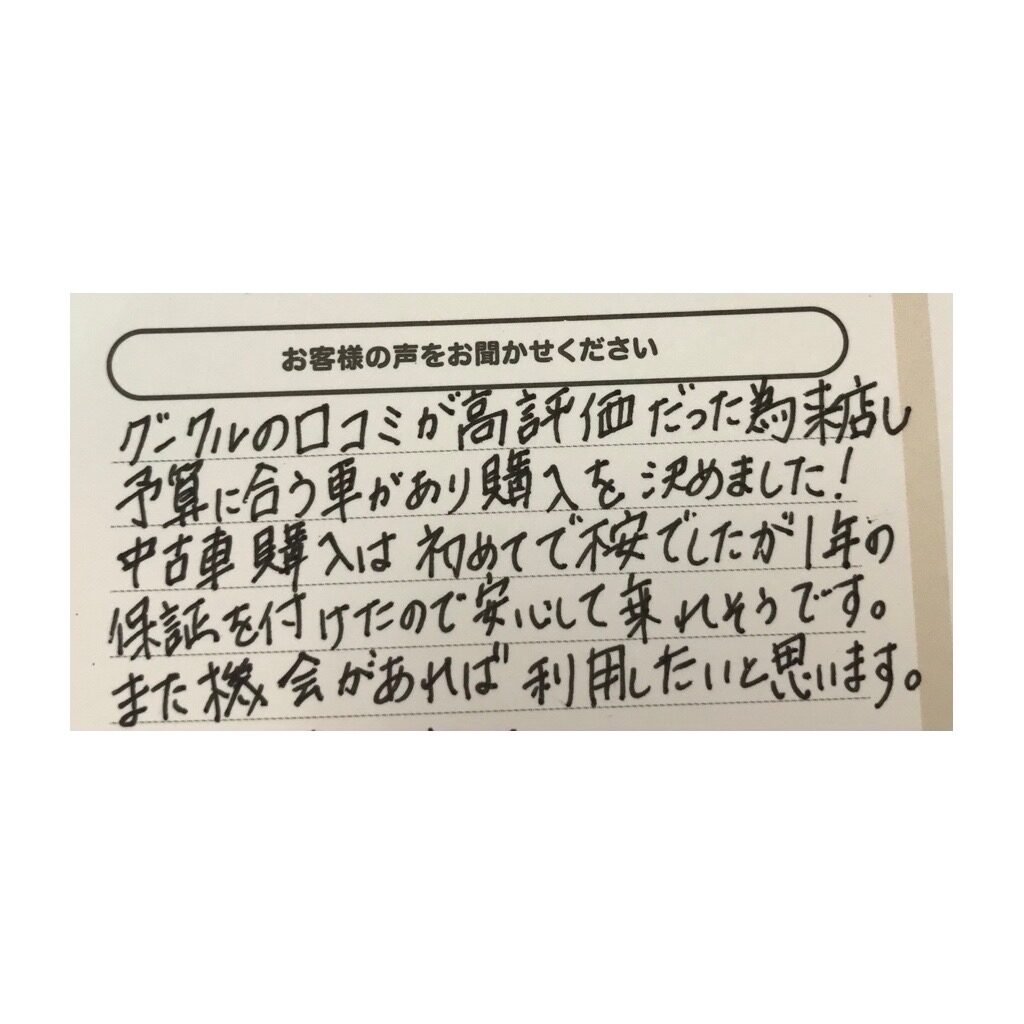 お客様の声をお聞かせください
グーグルの口コミが高評価だった為来店し
予算に合う車があり購入を決めました!
中古車購入は初めてで不安でしたが1年の
保証を付けたので安心して乗れそうです。
また機会があれば利用したいと思います。